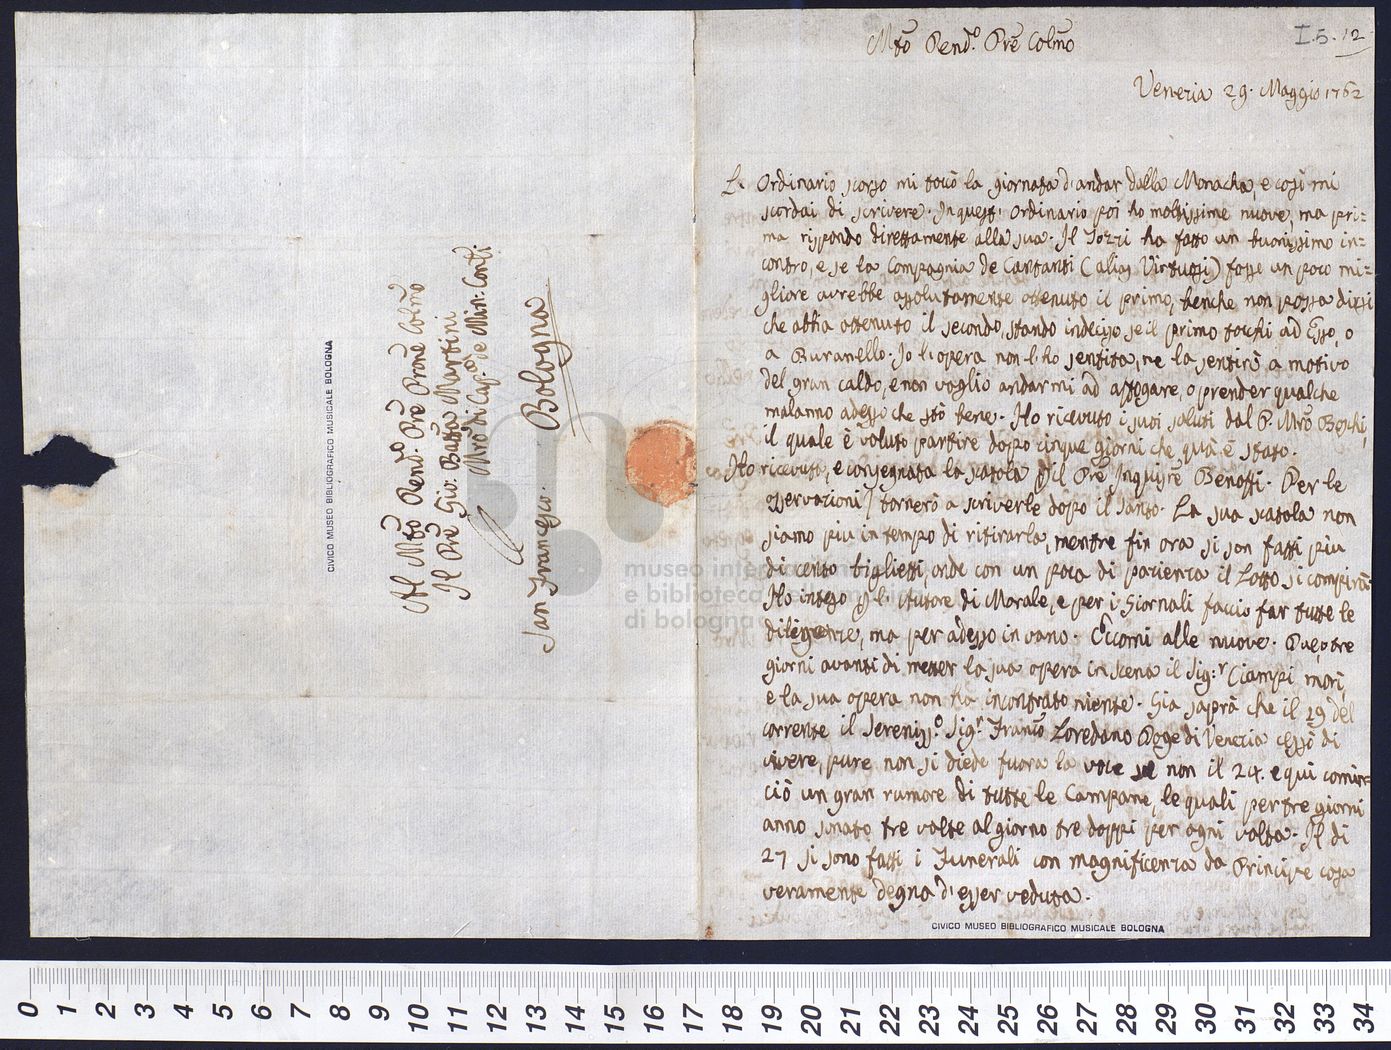 Al Mto Rendo. Pre Prone Colmo
Il Pre Gio: Batta Martini
Mro di Capa. de Min: Conti
San Francesco. Bologna
CIVICO MUSEO BIBLIOGRAFICO MUSICALE BOLOGNA
I.5.12
Mto Rendo. Pre Colmo
Venezia 29. Maggio 1762
L'Ordinario scorso mi toccò la giornata d'andar dalla Monacha, e così mi
scordai di scrivere. In quest' ordinario poi ho moltissime nuove, ma pri=
ma rispondo direttamente alla sua. Il Sozzi ha fatto un buonissimo in=
contro, e se la Compagnia de Cantanti (alias Virtuosi) fosse un poco mi=
gliore avrebbe assolutamente ottenuto il primo, benche non possa dirsi
che abbia ottenuto il secondo, stando indeciso se il primo tocchi ad Esso, o
a Buranello. Io l'opera non l'ho sentita, ne la sentirò a motivo
del gran caldo, e non voglio andarmi ad affogare, o prender qualche
malanno adesso che stò bene. Ho ricevuto i suoi saluti dal P. Mro Boschi,
il quale è voluto partire dopo cinque giorni che quà è stato.
Ho ricevuto, e consegnata la scatola p il Pre Inquisre Benoffi. Per le
osservazioni tornerò a scriverle dopo il Santo. La sua scatola non
siamo più in tempo di ritirarla, mentre fin ora si son fatti più
di cento biglietti, onde con un poca di pazienza il Lotto si compirà.
Ho inteso p l'Autore di Morale, e per i Giornali faccio far tutte le
diligenze, ma per adesso in vano. Eccomi alle nuove. Due, o tre
giorni avanti di metter la sua opera in scena il Sig:r Ciampi morì,
e la sua opera non ha incontrato niente. Gia saprà che il 19 del
corrente il Sereniss.o Sig.r Franco Loredano Doge di Venezia cessò di
vivere, pure non si diede fuora la voce se non il 24. e qui comin=
ciò un gran rumore di tutte le Campane, le quali per tre giorni
anno sonato tre volte al giorno tre doppi per ogni volta. Il di
27 si sono fatti i Funerali con magnificenza da Principe cosa
veramente degna d'esser veduta.
CIVICO MUSEO BIBLIOGRAFICO MUSICALE BOLOGNA
museo internazionale
e biblioteca della musica
di bologna
0 1 2 3 4 5 6 7 8 9 10 11 12 13 14 15 16 17 18 19 20 21 22 23 24 25 26 27 28 29 30 31 32 33 34